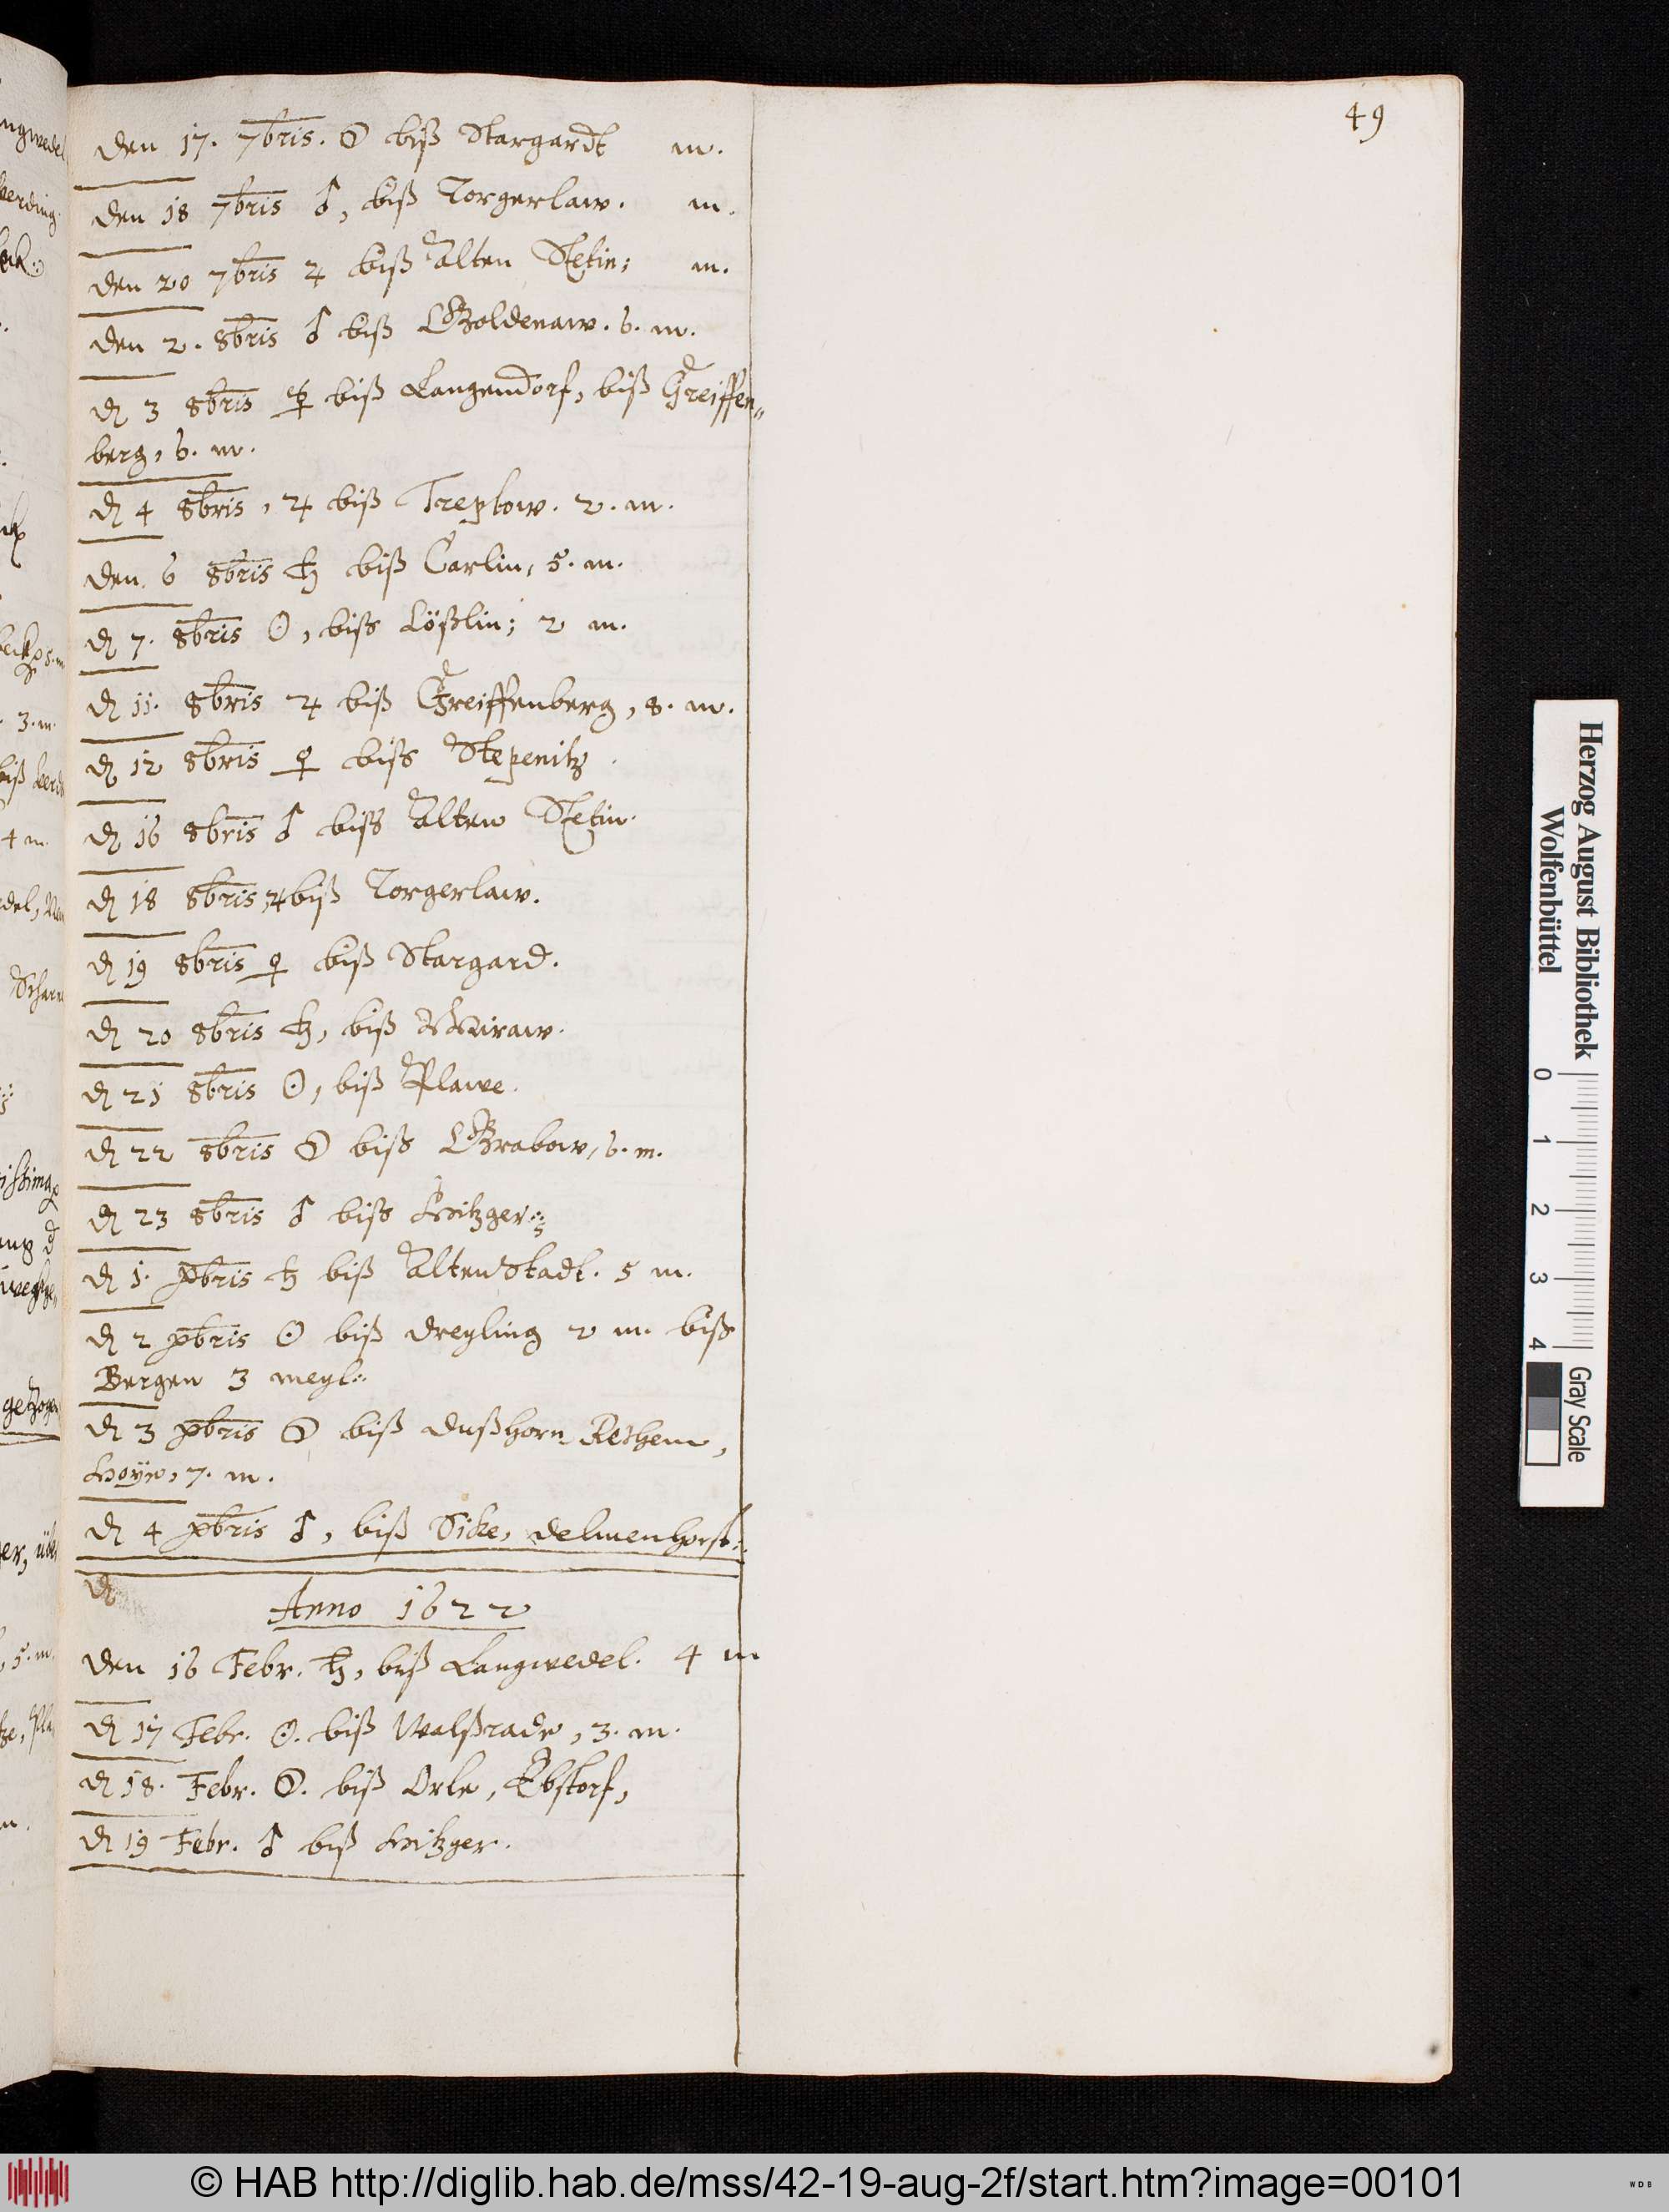 49
den 17. 7bris. ☽ biß Stargardt m.
den 18 7bris ♂, biß Torgerlaw. m.
den 20 7bris ♃ biß Alten Stetin; m.
den 2. 8bris ♂ biß Goldenaw. 6. m.
dn 3 8bris ☿ biß Langendorf, biß Greiffen„
berg, 6. m.
dn 4 8bris, ♃ biß Treptow. 2. m.
den 6 8bris ♄ biß Carlin, 5. m.
dn 7. 8bris ☉, biß Cößlin; 2 m.
dn 11. 8bris ♃ biß Greiffenberg, 8. m.
dn 12 8bris ♀ biß Stepenitz
dn 16 8bris ♂ biß Alten Stetin.
dn 18 8bris, ♃ biß Torgerlaw.
dn 19 8bris ♀ biß Stargard.
dn 20 8bris ♄, biß Miraw.
dn 21 8bris ☉, biß Plawe.
dn 22 8bris ☽ biß Grabow, 6. m.
dn 23 8bris ♂ biß Hitzger:
dn 1. 9bris ♄ biß AltenStadt. 5 m.
dn 2 9bris ☉ biß dreyling 2 m. biß
Bergen 3 meyl:
dn 3 9bris ☽ biß dußhorn Rethem,
Hoÿe, 7. m.
dn 4 9bris ♂, biß Sike, delmenhorst:
dn
Anno 1622
den 16 Febr. ♄, biß Langwedel. 4 m
dn 17 Febr. ☉. biß Walßrade, 3. m.
dn 18. Febr. ☽. biß Orle, Ebstorf,
dn 19 Febr. ♂ biß Hitzger.
Herzog August Bibliothek
Wolfenbüttel
0 1 2 3 4
Gray Scale
© HAB http://diglib.hab.de/mss/42-19-aug-2f/start.htm?image=00101
WDB